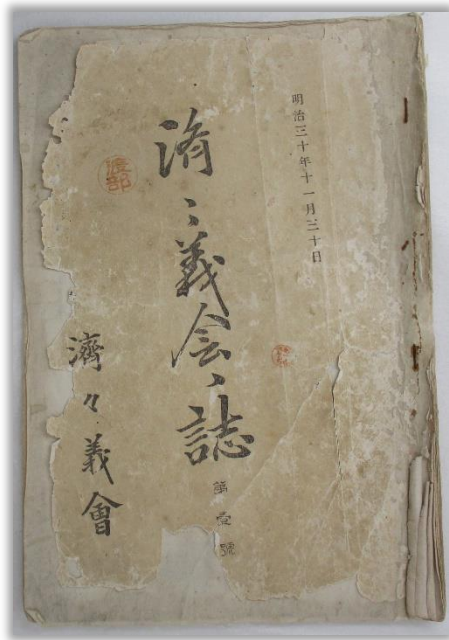 明治三十年十一月三十日
済〻義会ヽ誌
第壱號
渡部
濟々義會